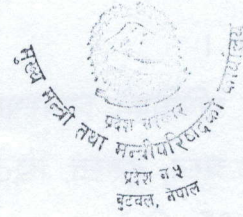 प्रदेश सरकार
मुख्य मन्त्री तथा मन्त्रीपरिषदको कार्यालय
प्रदेश नं ५
बुटवल, नेपाल